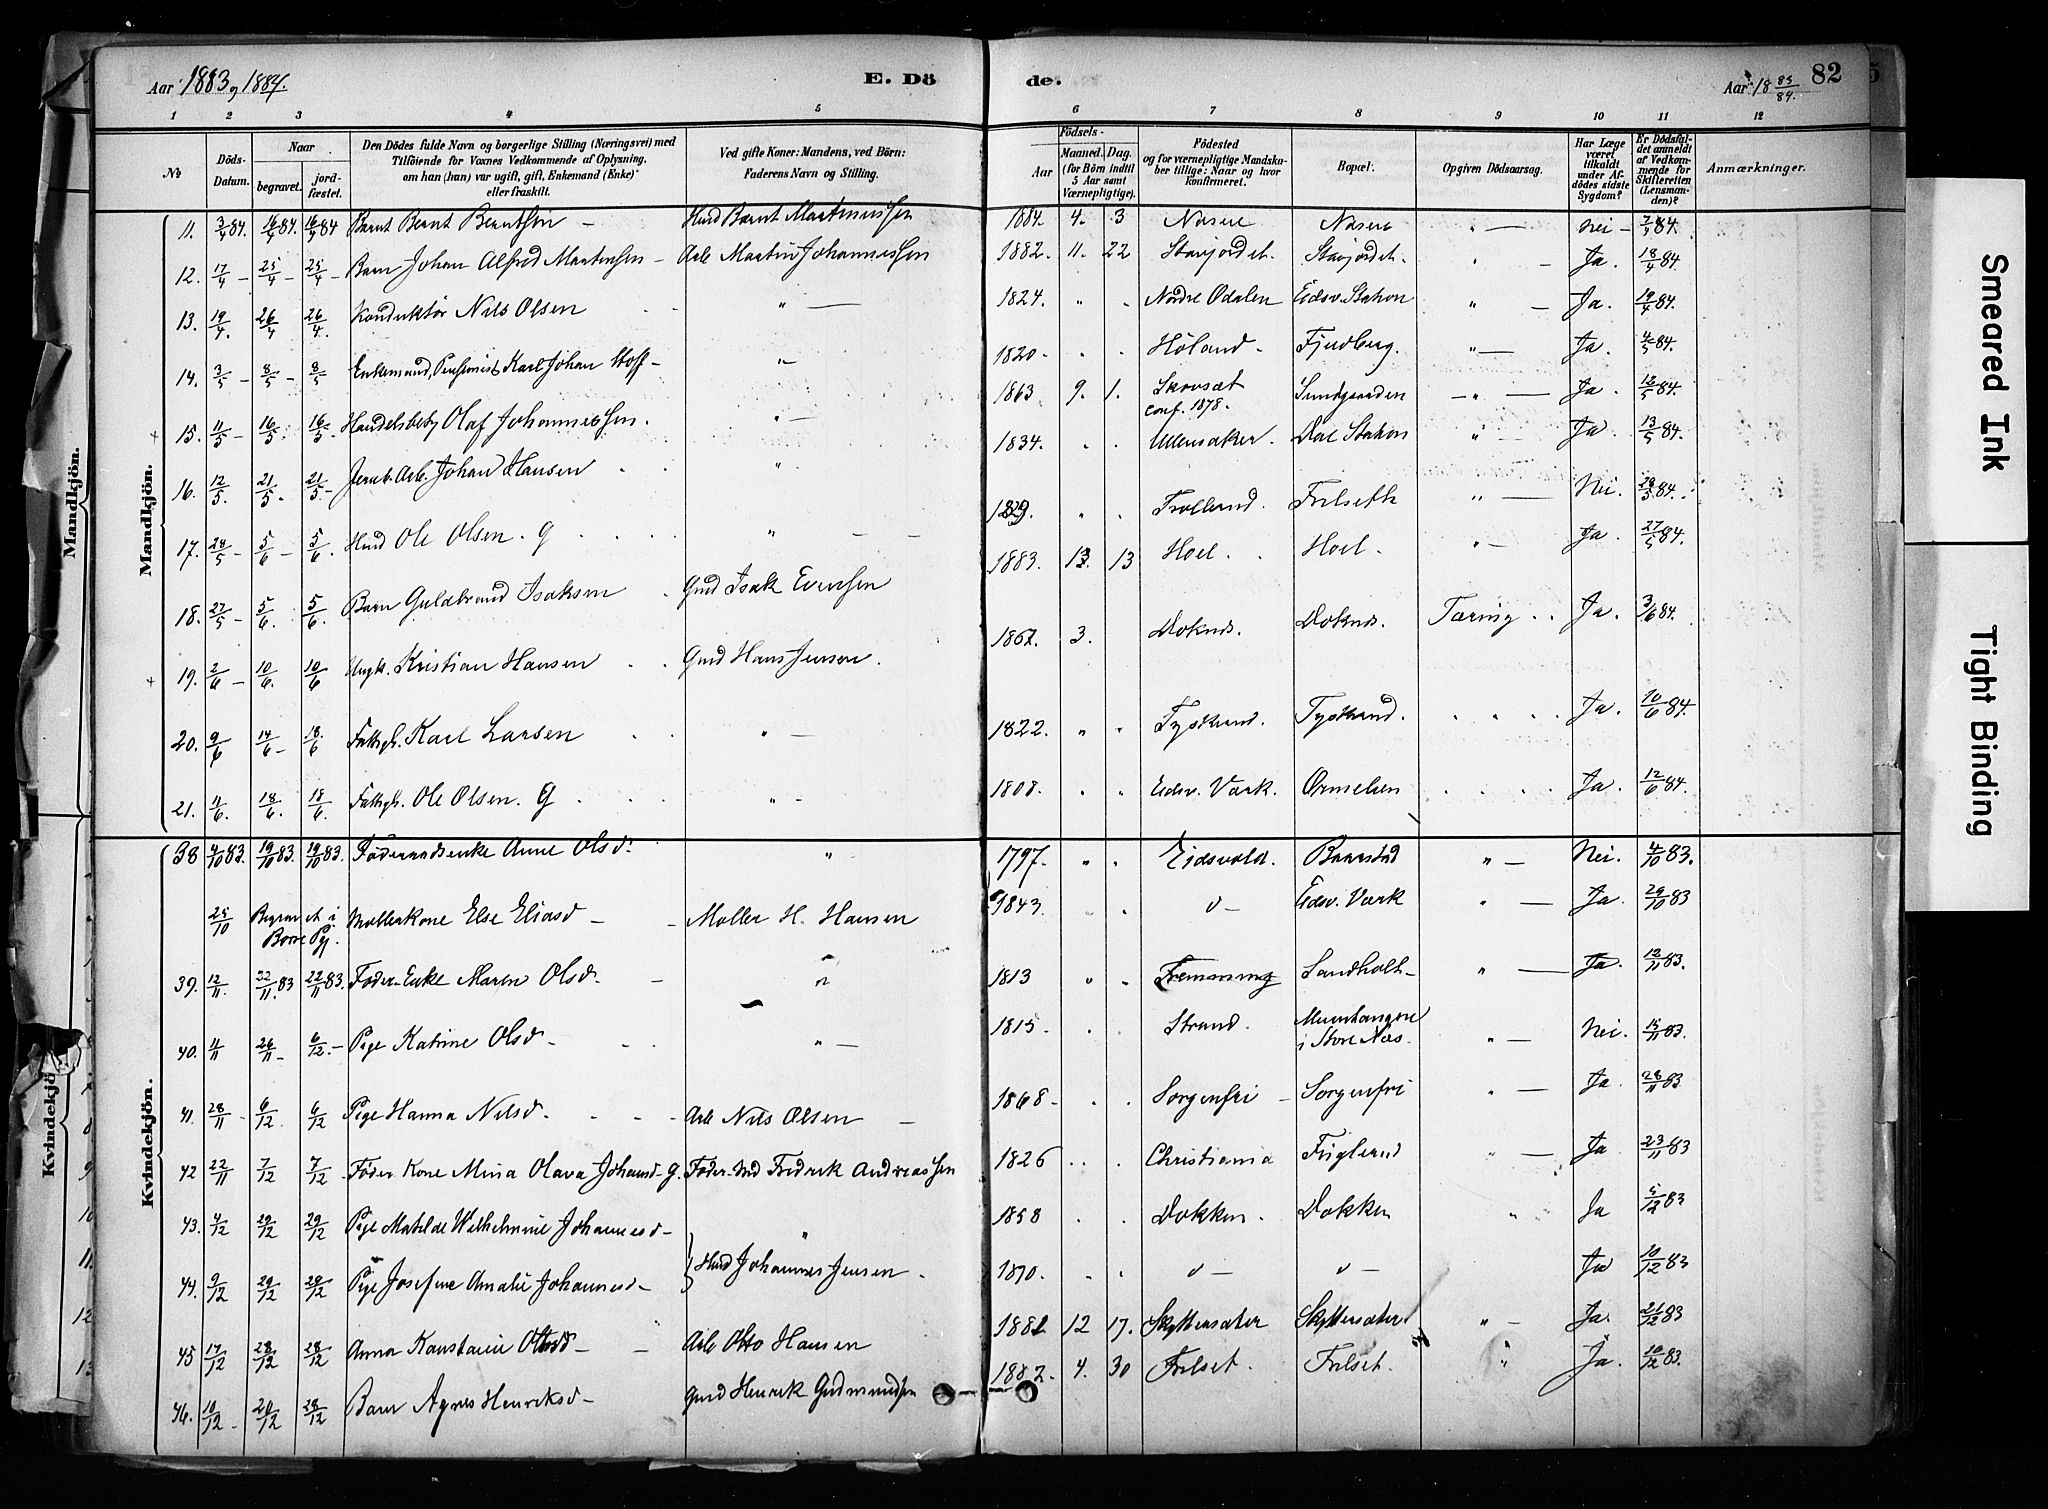 Aar 1883 og 1884.
E. Dö
de.
Aar 18 83/84.
82
1 2 3 4 5 6 7 8 9 10 11 12
No
Döds-Datum.
Naar
begravet.
jordfæstet.
Den Dödes fulde Navn og borgerlige Stilling (Næringsvei) med
Tilföiende for Voxnes Vedkommende af Oplysning,
om han (hun) var ugift, gift, Enkemand (Enke)
eller fraskilt.
Ved gifte Koner: Mandens, ved Börn:
Faderens Navn og Stilling.
Födsels-
Aar
Maaned. Dag.
(for Börn indtil
5 Aar samt
Værnepligtige).
Födested
og for værnepligtige Mandska-
ber tillige: Naar og hvor
konfirmeret.
Bopæl.
Opgiven Dödsaarsag.
Har Læge
været
tilkaldt
under Af-
dödes sidste
Sygdom?
Er Dödsfal-
det anmeldt
af Vedkom-
mende for
Skifteretten
(Lensman-
den)?
Anmærkninger.
Mandkjön.
11. 3/4 84. 16/4 84. 16/4 84 Barnt Bernt Berntsen – Husd Bernt Martinussen 1884. 4. 3 Næsere Næsere " — Nei – 7/4 84.
12. 17/4 – 25/4 – 25/4 – Barn Johan Alfred Martinsen – Arb. Martin Johannessen 1882. 11. 22 Stavjordet. Stavjordet. " – Ja. 18/4 84.
13. 19/4. 26/4 26/4. Konduktör Nils Olsen " — 1824. " " Nordre Odalen Eidsv. Station " – Ja. 19/4 84.
14. 3/5 – 8/5 – 8/5 Enkemand, Pensionist Karl Johan Hoff – "– 1820 – " " Höland – " — Ja. 4/5 84.
15. 11/5 – 16/5. 16/5. Handelsbetj Olaf Johannessen. " – 1863 9. 1. conf. 1878. Sundgaarden – " — Ja. 12/5 84.
16. 12/5. 21/5. 21/5 – Jernb. Arb. Johan Hansen " 1834. " " Ullensaker. Dal Station " – Ja. 13/5 84.
17. 28/5 – 5/6 – 5/6. Husd Ole Olsen. G " – 1829. " " Frilseth " — Nei. 28/5 84.
18. 27/5 – 5/6 5/6. Barn Guldbrand Isaksen Gmd Isak Evensen 1883. 13. 13 Hoel. Hoel. " – Ja. 27/5 84.
19. 2/6 – 10/6. 10/6 Ungk. Kristian Hansen Gmd Hans Jensen. 1867. 3. Doknds. Doknds. Tæring Ja. 3/6 84.
20. 9/6 14/6 – 18/6 Fattigl. Karl Larsen " – 1822. " " Tyskrud. Tyskrud. Ja. 10/6 84.
21. 11/6. 18/6. 18/6 Fattigl. Ole Olsen. G " – 1808. " " Eidsv. Værk. Ormelien Ja. 12/6 84.
Kvindekjön.
38 4/10 83. 19/10 83. 19/10 83. Föderaadsenke Anne Olsd. " 1797. " " Eidsvold. Baarstad " – Nei. 4/10 83.
25/10 Begravet i Borre Pgj. Möllerkone Else Eliasd – Möller H. Hansen 1843. " " v – Eidsv. Værk " — Ja. 29/10 83
39. 12/11. 22/11 83 22/11 83. Föder-Enke Maren Olsd. – " 1813 " " Fremming Sandholt – " — Ja. 12/11 83.
40. 11/11 26/11 – 6/12. – Pige Katrine Olsd. " — 1815. " " Strand. i Store Næs. " – Nei. 15/11 83.
41. 28/11 – 6/12 6/12 Pige Hanna Nilsd. Arb Nils Olsen – 1868 – " " Sorgenfri – Sorgenfri " – Ja. 28/11 83
42 22/11 7/12 7/12 – Föder. Kone Mina Olava Johansd. G. Föder. Md Fredrik Andreassen 1826 " " Christiania " – Ja 23/11 83
43. 4/12 29/12 29/12 Pige Matilde Wilhelmine Johannesd – " 1858 " " Dokken. Dokken " Ja 5/12 83
44. 9/12 29/12 29/12 Pige Josefine Amalie Johannesd – Husd Johannes Jensen. 1870. " " v – v – Ja 10/12 83
45 17/12 28/12 28/12 Anna Konstance Ottosd – Arb Otto Hansen 1881 12 17. Skyttersæter Skyttersæter " – Ja. 21/12 83
46. 10/12 – 29/12 29/12 Barn Agnes Henriksd – Gmd Henrik Gudmundsen 1882. 4. 30 Frilset. Frilset. " Ja. 10/12 83.
Mandkjön.
Kvindekjön.
7
8
9
10
11
12
13
5
Smeared Ink
Tight Binding